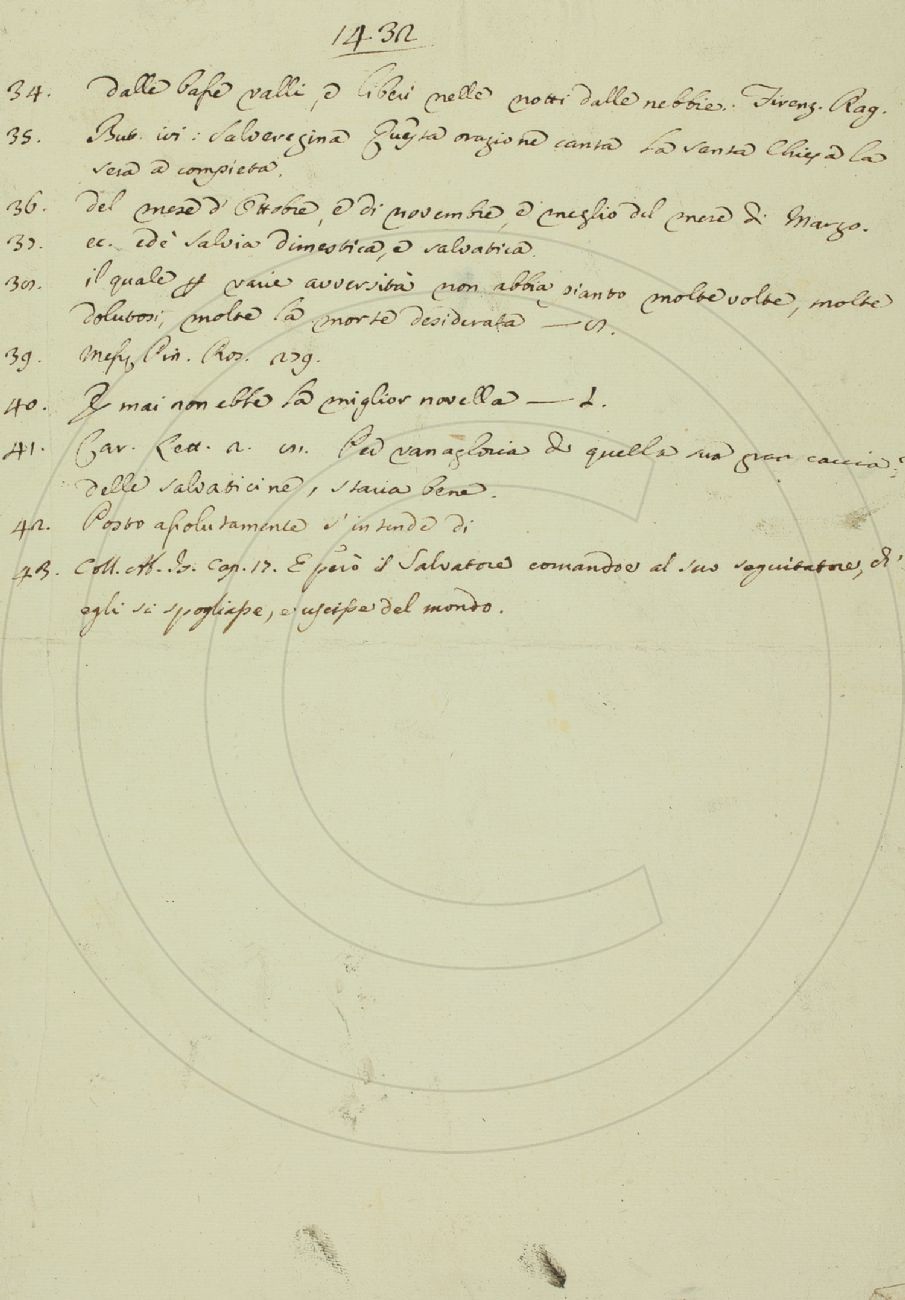 1432
34. dalle basse valli, e liberi nelle notti dalle nebbie. Firenz. Rag.
35. But. ivi: Salveregina Questa orazione canta la santa Chiesa la
sera a compieta.
36. del mese d'Ottobre, e di novembre, e meglio del mese di Marzo.
37. ec. ed è salvia dimestica, e salvatica
38. il quale p varie avversità non abbia pianto molte volte, molte
dolutosi, molte la morte desiderata — S.
39. Pin. Ros. 279.
40. E mai non ebbe la miglior novella — L.
41. Car. Lett. 2. Per vanagloria di quella sua gran caccia
delle salvaticine, stava bene.
42. Posto assolutamente s'intende di
43. Coll. Ab. Is. Cap. 17. E però il Salvatore comandoe al suo seguitatore, ch'
egli si spogliasse, e uscisse del mondo.